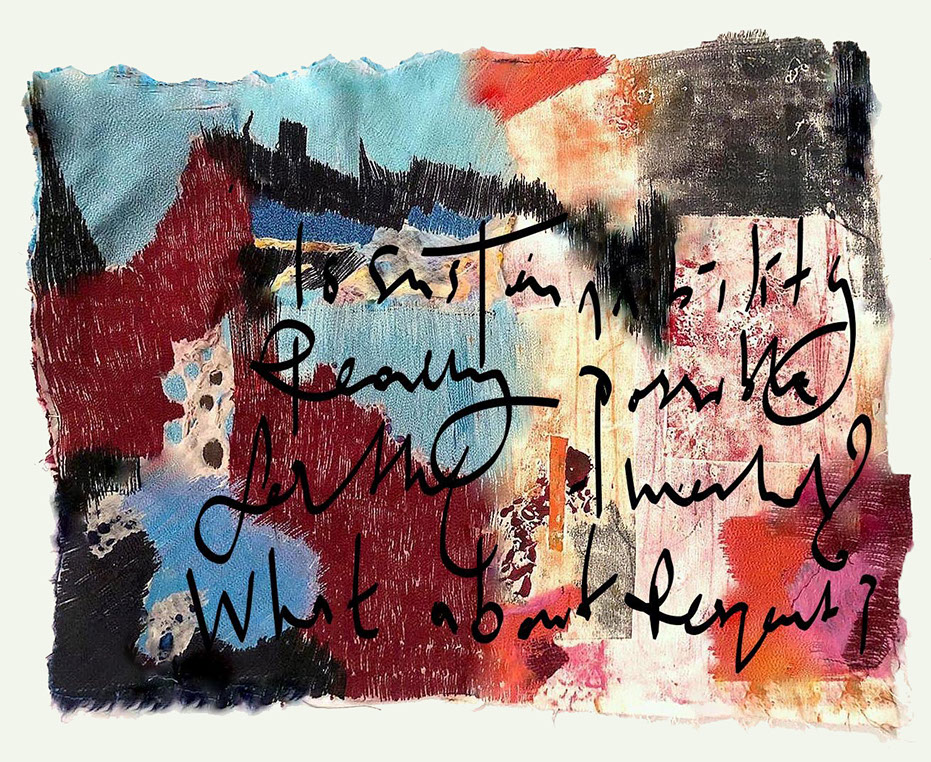 Is Sustainability
Really possible
for the
What about Respect?